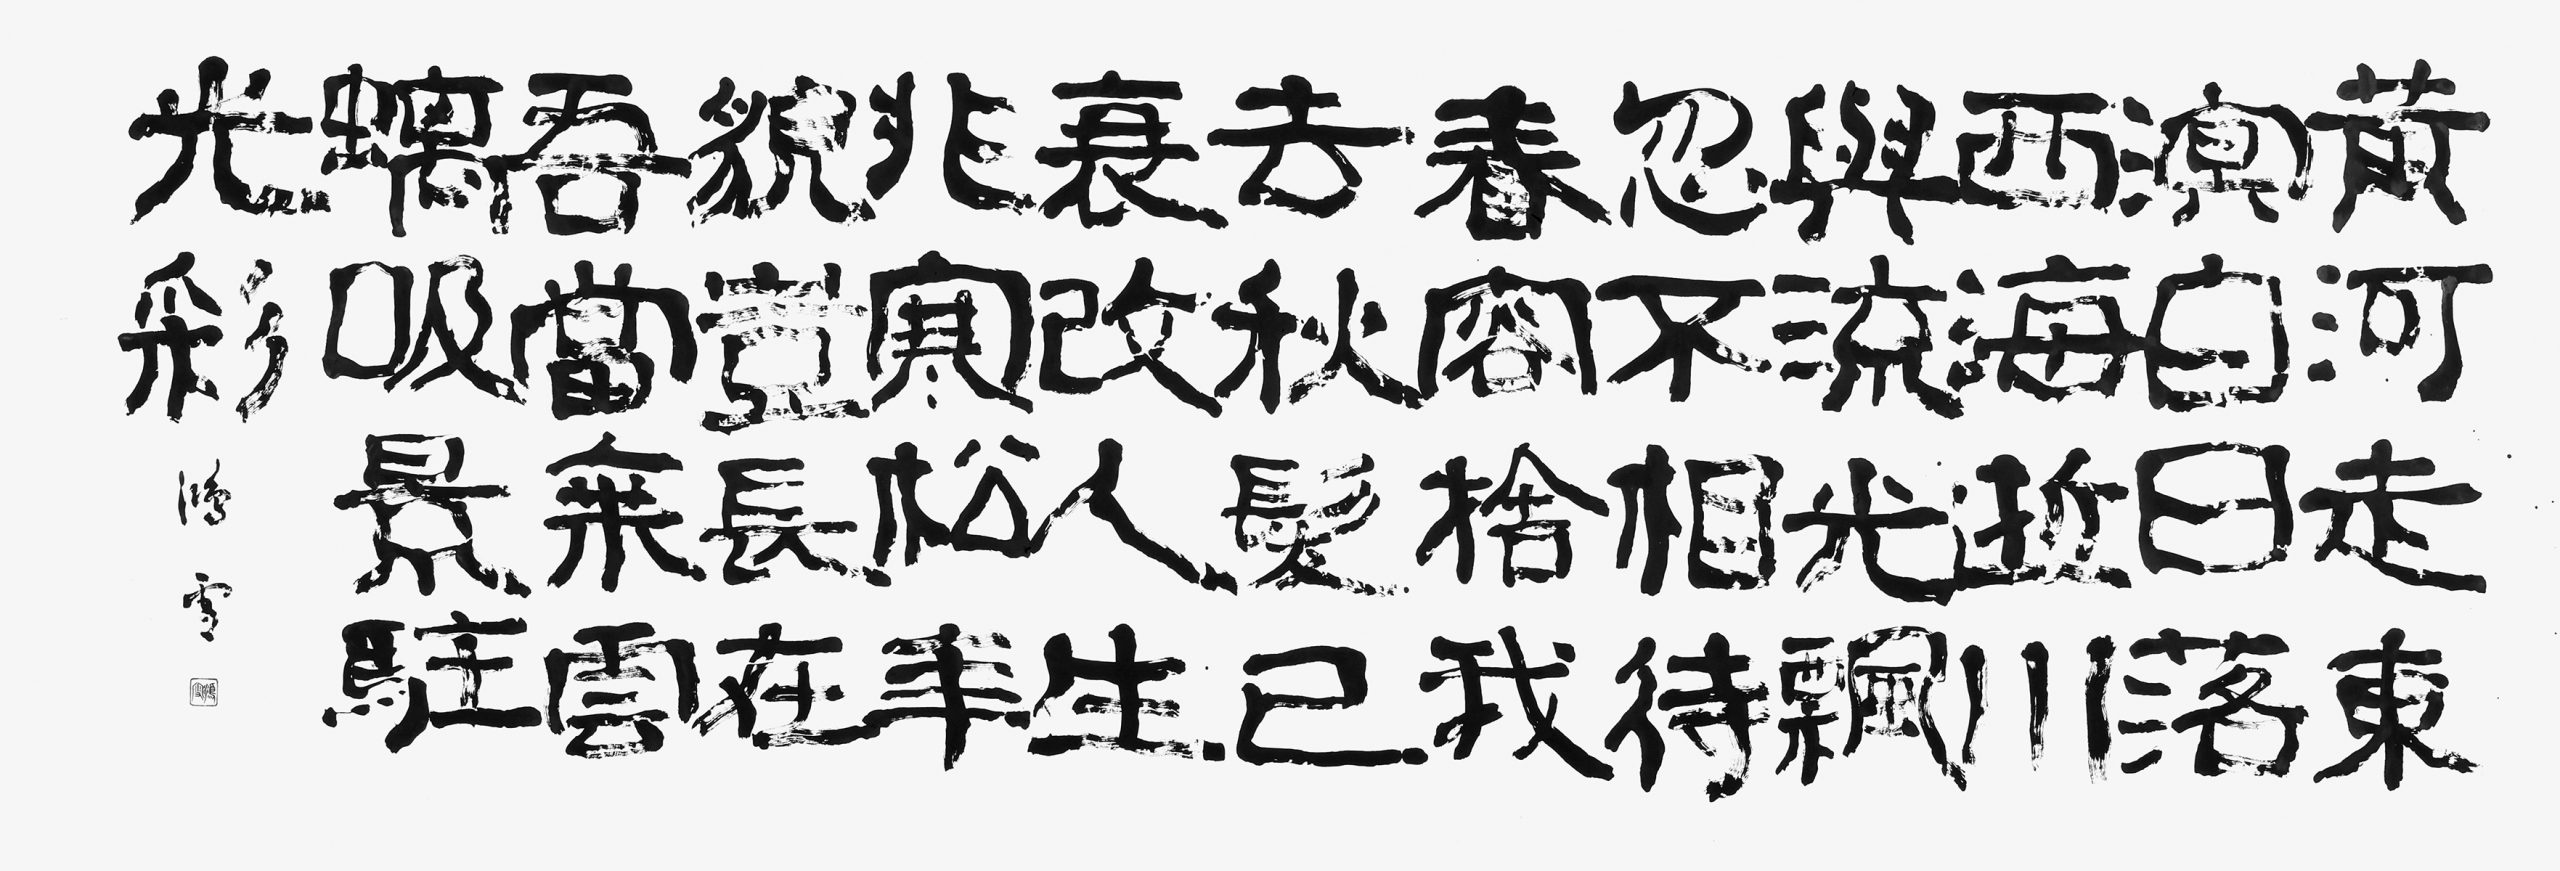 黄河走東
溟白日落
西海逝川
與流光飄
忽不相待
春容捨我
去秋髮已
衰改人生
非寒松年
貌豈長在
吾當乘雲
螭吸景駐
光彩
鴻雪